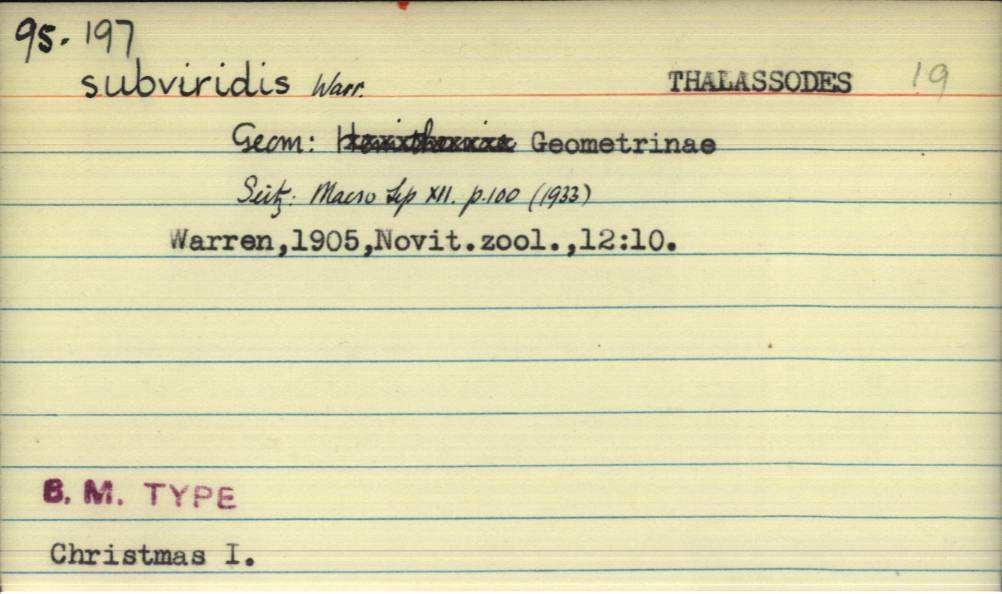 95. 197
subviridis Warr. THALASSODES 19
Geom: Geometrinae
Seitz: Macro Lep XII. p.100 (1933)
Warren,1905,Novit.zool.,12:10.
B. M. TYPE
Christmas I.